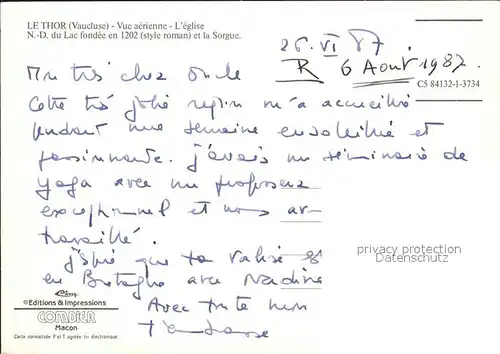 LE THOR (Vaucluse) - Vue aérienne - L'église
N.-D. du Lac fondée en 1202 (style roman) et la Sorgue.
26. VI 87
R 6 Aout 1987.
CS 84132-1-3734
Mon très cher oncle
Cette très jolie region m'a accueillie
pendant une semaine ensoleillée et
passionnante. J'avais un séminaire de
yoga avec un professeur
exceptionnel et nous av-
travaillé.
J'espère que ta valise est
en Bretagne avec Nadine
Avec toute mon
tendresse
privacy protection
Datenschutz
©Editions & Impressions
COMBIER
Macon
Carte normalisée P et T agréée tri électronique